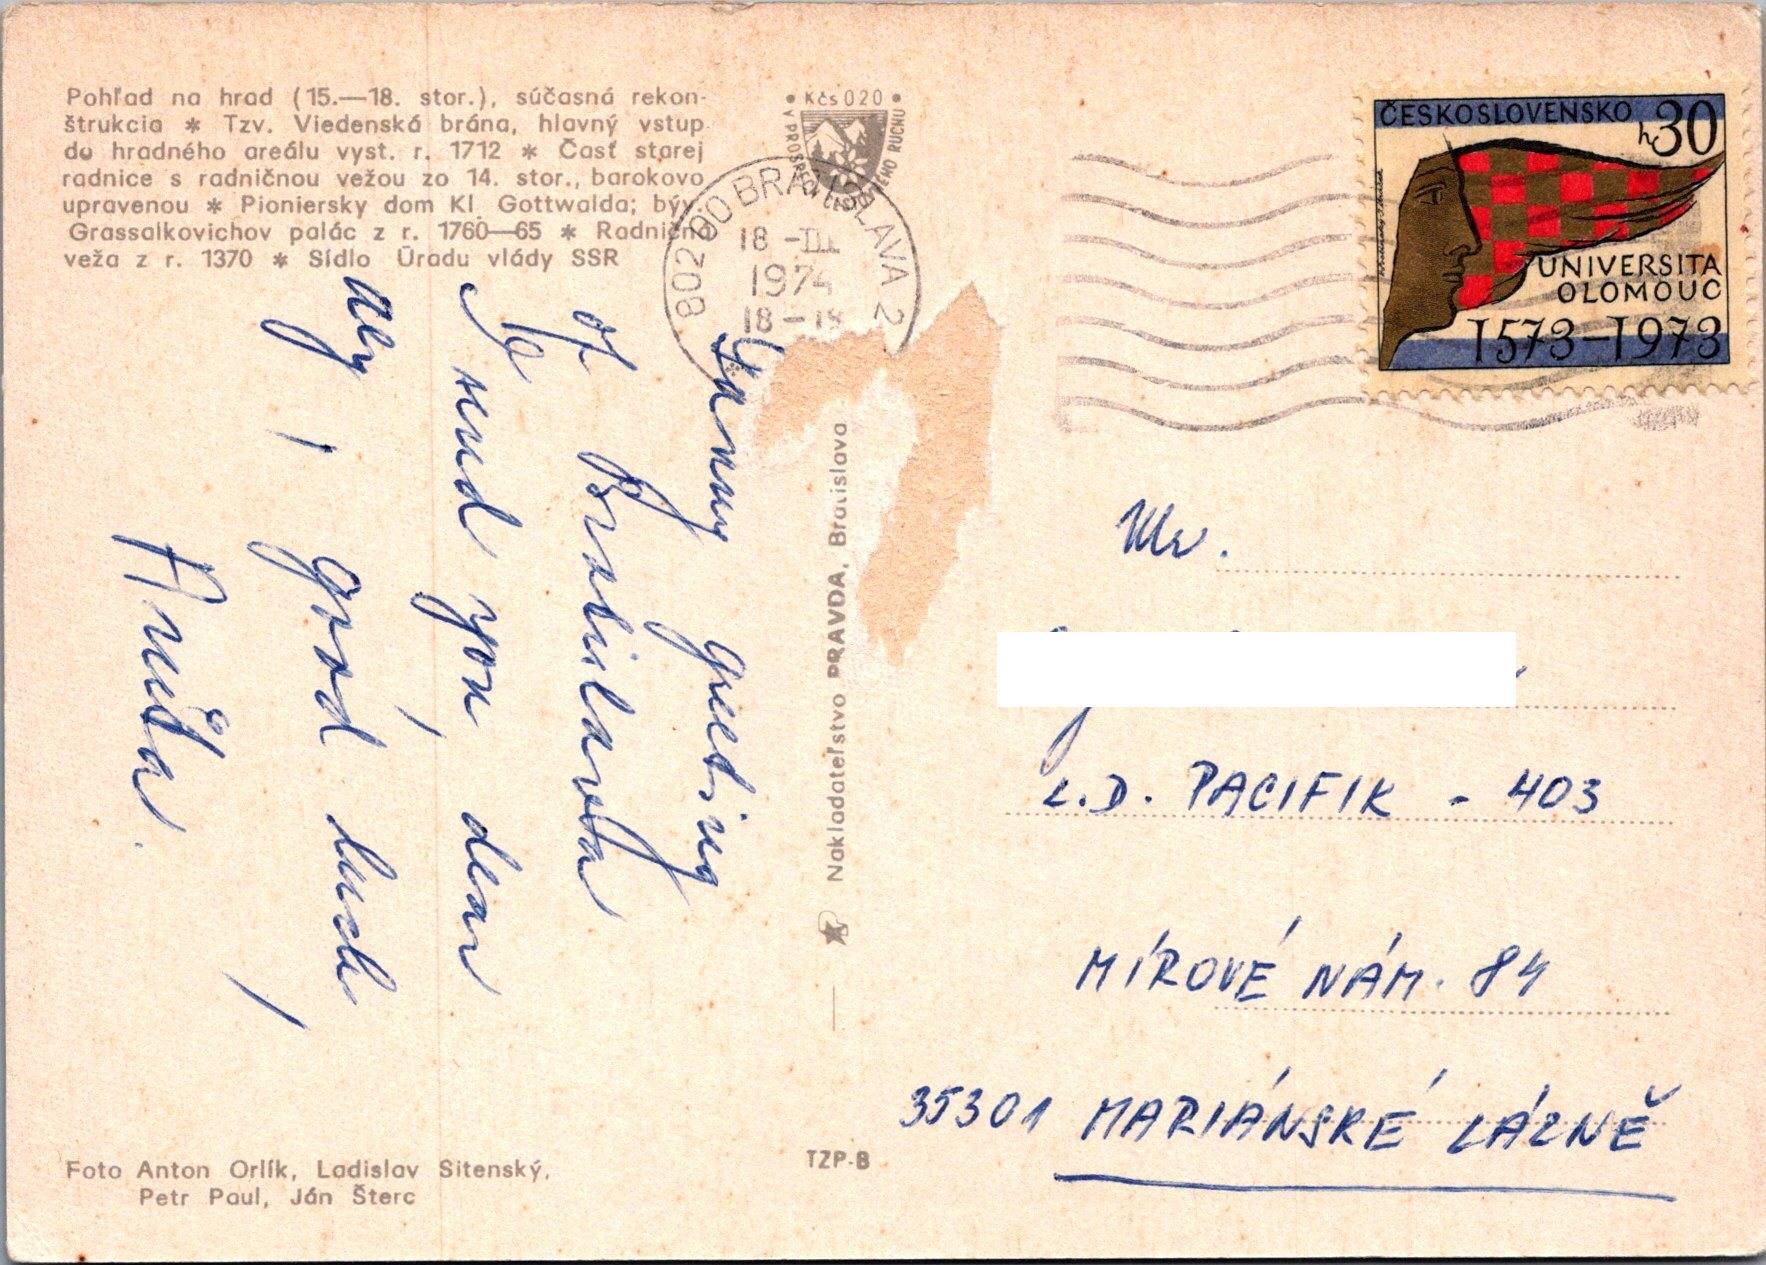 Pohľad na hrad (15.—18. stor.), súčasná rekon-
štrukcia * Tzv. Viedenská brána, hlavný vstup
do hradného areálu vyst. r. 1712 * Časť starej
radnice s radničnou vežou zo 14. stor., barokovo
upravenou * Pioniersky dom Kl. Gottwalda; býv.
Grassalkovichov palác z r. 1760—65 * Radničná
veža z r. 1370 * Sídlo Úradu vlády SSR
• Kčs 020 •
802 00 BRATISLAVA 2
18 -III
1974
18-18
ČESKOSLOVENSKO
h30
UNIVERSITA
OLOMOUC
1573-1973
greeting
of Bratislava
send you, dear
good luck
Nakladateľstvo PRAVDA, Bratislava
Mr.
L.D. PACIFIK - 403
MÍROVÉ NÁM. 84
35301 MARIÁNSKÉ LÁZNĚ
Foto Anton Orlík, Ladislav Sitenský,
Petr Paul, Ján Šterc
TZP-B